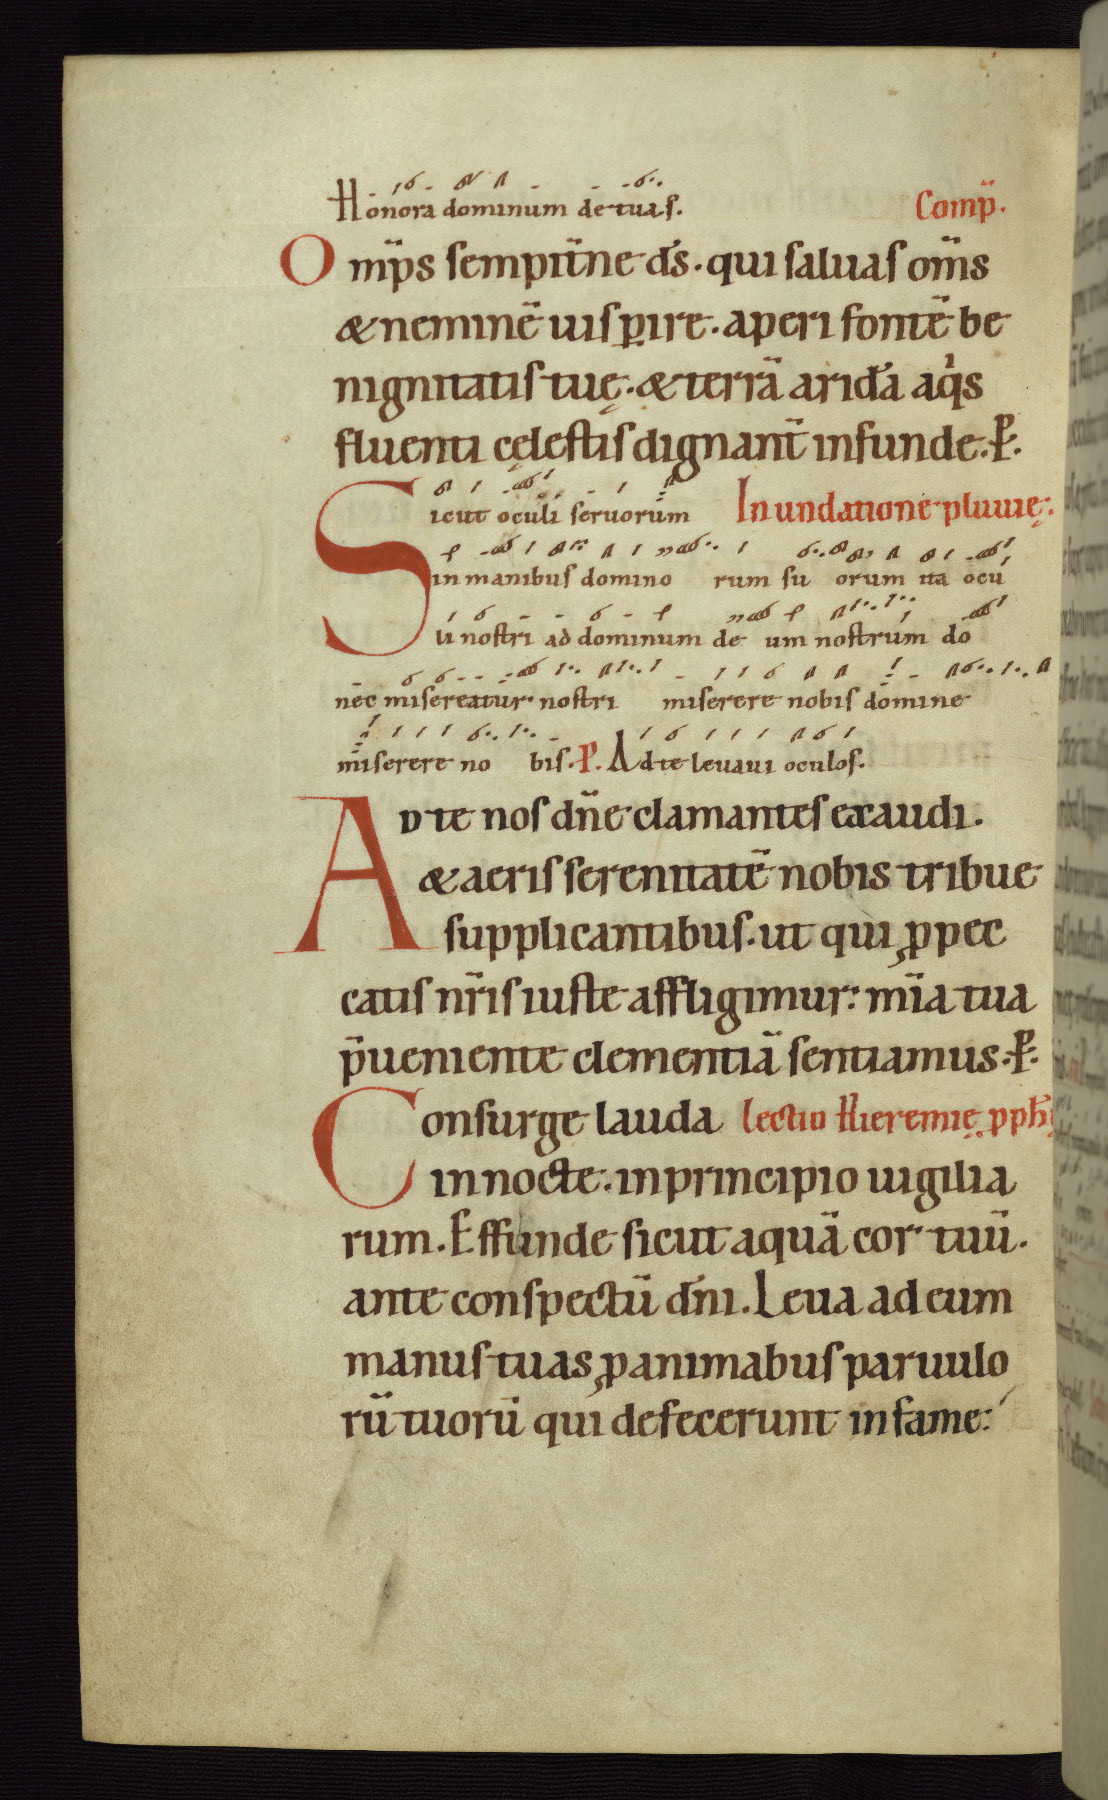 Honora dominum de tuas. Comp̄.
Omp̄s sempit̄ne ds̄. qui saluas om̄s
& neminē uis ꝑire. aperi fontē be
nignitatis tuę. & terrā aridā aqͥs
fluenti cęlestis dignant̄ infunde. P.
Sicut oculi seruorum In undatione pluuię.
in manibus domino rum su orum ita ocu
li nostri ad dominum de um nostrum do
nec misereatur nostri miserere nobis domine
miserere no bis. P. Ad te leuaui oculos.
AD te nos dn̄e clamantes exaudi.
& aeris serenitatē nobis tribue
supplicantibus. ut qui ꝓ pec
catis nr̄is iuste affligimur: mīa tua
p̄ueniente clementiā sentiamus. P.
Consurge lauda lectio Hieremię pph̄ę
in nocte. in principio uigilia
rum. Effunde sicut aquā cor tuū.
ante conspectū dn̄i. Leua ad eum
manus tuas ꝓ animabus paruulo
rū tuorū qui defecerunt in fame: